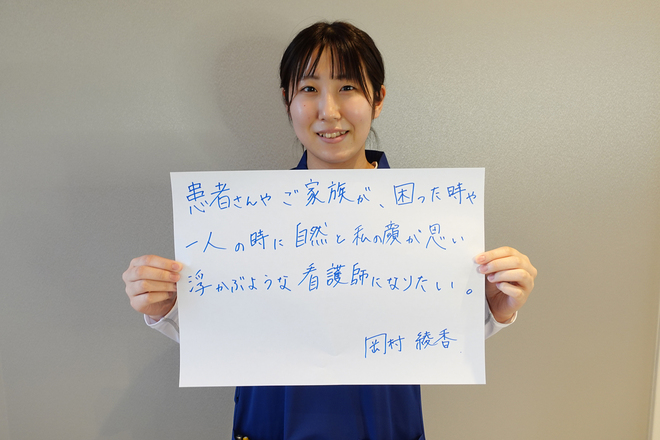 患者さんやご家族が、困った時や
一人の時に自然と私の顔が思い
浮かぶような看護師になりたい。
岡村 綾香